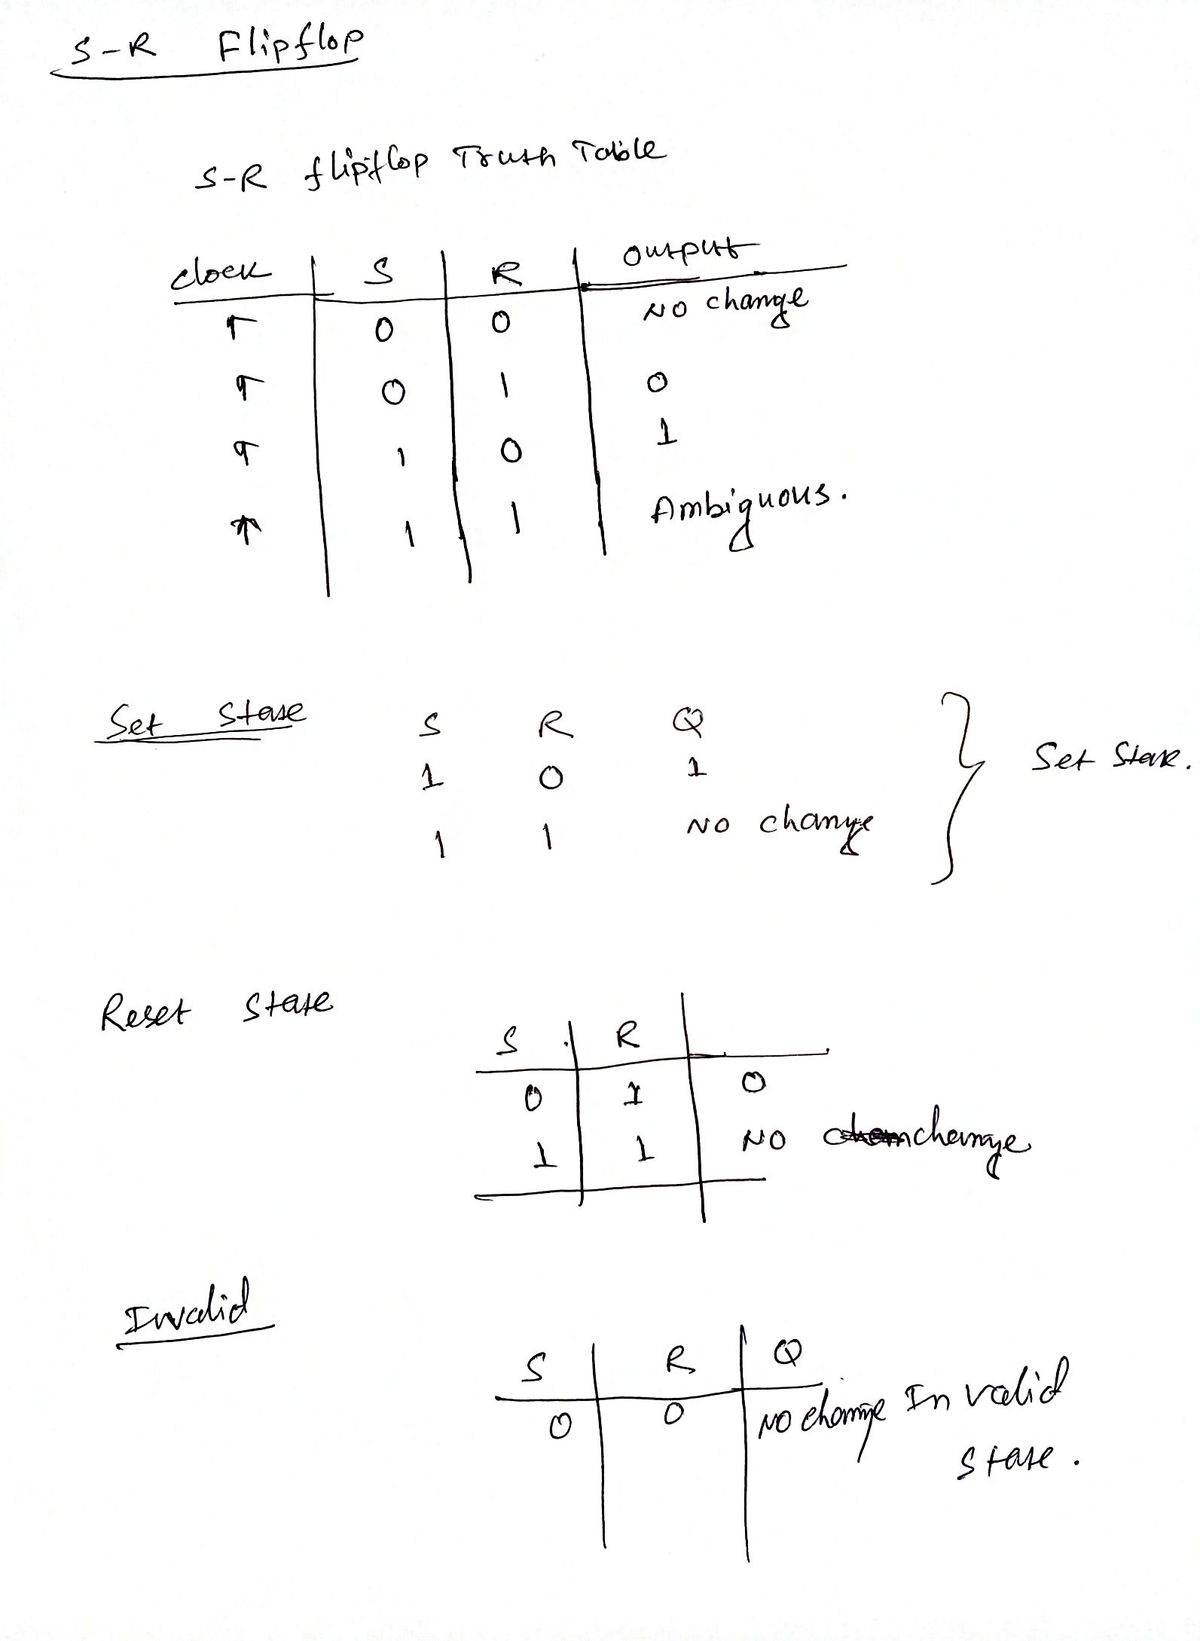 S-R Flipflop
S-R flipflop Truth Table
clock S R output
↑ 0 0 NO change
↑ 0 1 0
↑ 1 0 1
↑ 1 1 Ambiguous.
Set State S R Q
1 0 1
1 1 NO change
} Set State.
Reset State
S R
0 1 0
1 1 NO change
Invalid
S R Q
0 0 NO change Invalid
State.